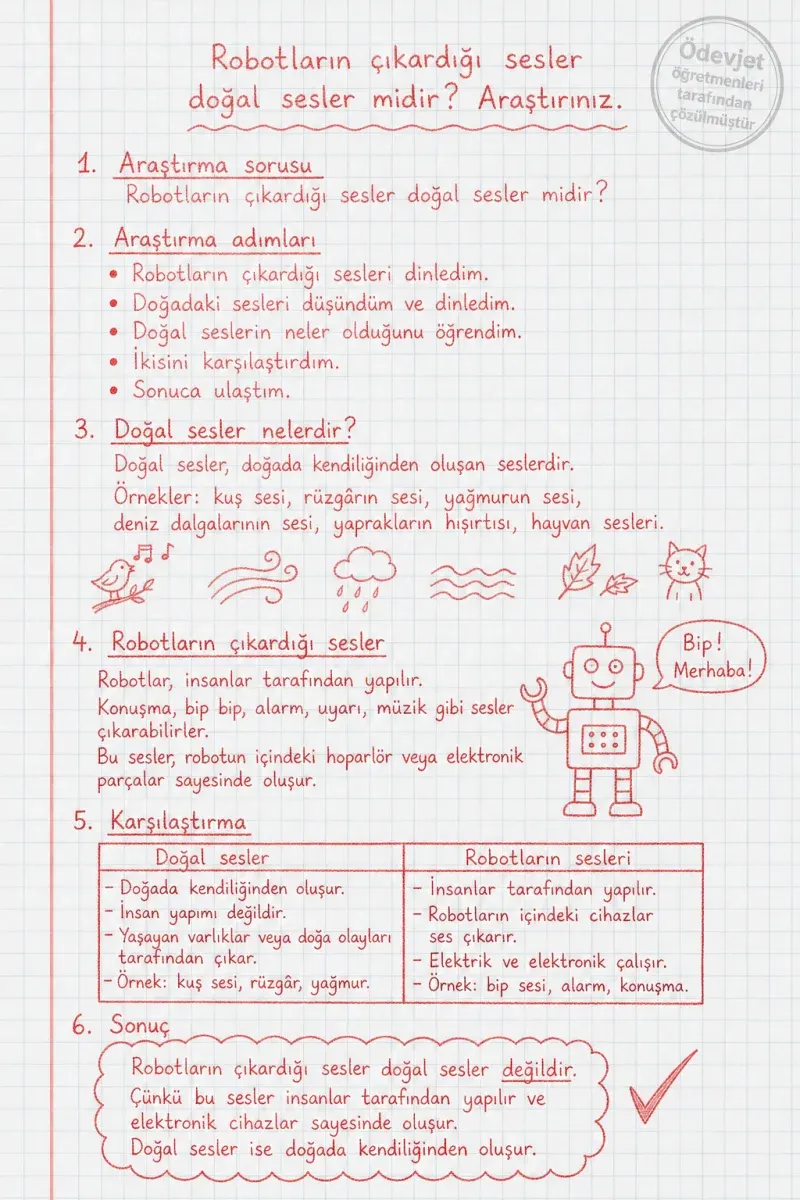 Robotların çıkardığı sesler
doğal sesler midir? Araştırınız.
Ödevjet
öğretmenleri
tarafından
çözülmüştür
1. Araştırma sorusu
Robotların çıkardığı sesler doğal sesler midir?
2. Araştırma adımları
• Robotların çıkardığı sesleri dinledim.
• Doğadaki sesleri düşündüm ve dinledim.
• Doğal seslerin neler olduğunu öğrendim.
• İkisini karşılaştırdım.
• Sonuca ulaştım.
3. Doğal sesler nelerdir?
Doğal sesler, doğada kendiliğinden oluşan seslerdir.
Örnekler: kuş sesi, rüzgârın sesi, yağmurun sesi,
deniz dalgalarının sesi, yaprakların hışırtısı, hayvan sesleri.
4. Robotların çıkardığı sesler
Robotlar, insanlar tarafından yapılır.
Konuşma, bip bip, alarm, uyarı, müzik gibi sesler
çıkarabilirler.
Bu sesler, robotun içindeki hoparlör veya elektronik
parçalar sayesinde oluşur.
Bip!
Merhaba!
5. Karşılaştırma
Doğal sesler
- Doğada kendiliğinden oluşur.
- İnsan yapımı değildir.
- Yaşayan varlıklar veya doğa olayları
tarafından çıkar.
- Örnek: kuş sesi, rüzgâr, yağmur.
Robotların sesleri
- İnsanlar tarafından yapılır.
- Robotların içindeki cihazlar
ses çıkarır.
- Elektrik ve elektronik çalışır.
- Örnek: bip sesi, alarm, konuşma.
6. Sonuç
Robotların çıkardığı sesler doğal sesler değildir.
Çünkü bu sesler insanlar tarafından yapılır ve
elektronik cihazlar sayesinde oluşur.
Doğal sesler ise doğada kendiliğinden oluşur.